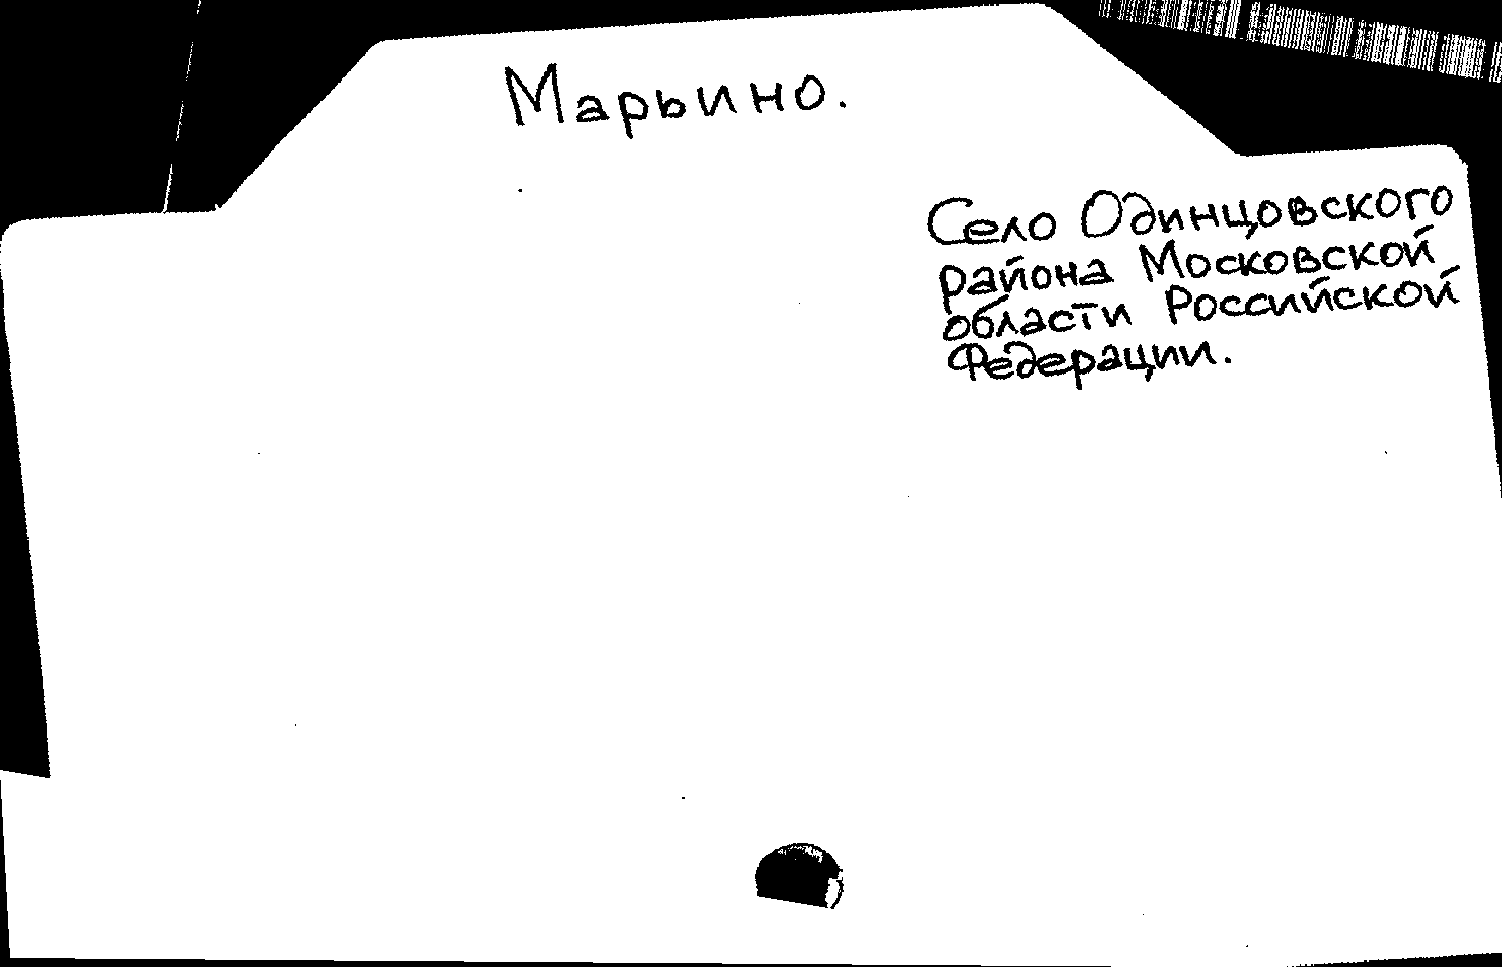 Марьино.
Село Одинцовского
района Московской
области Российской
Федерации.